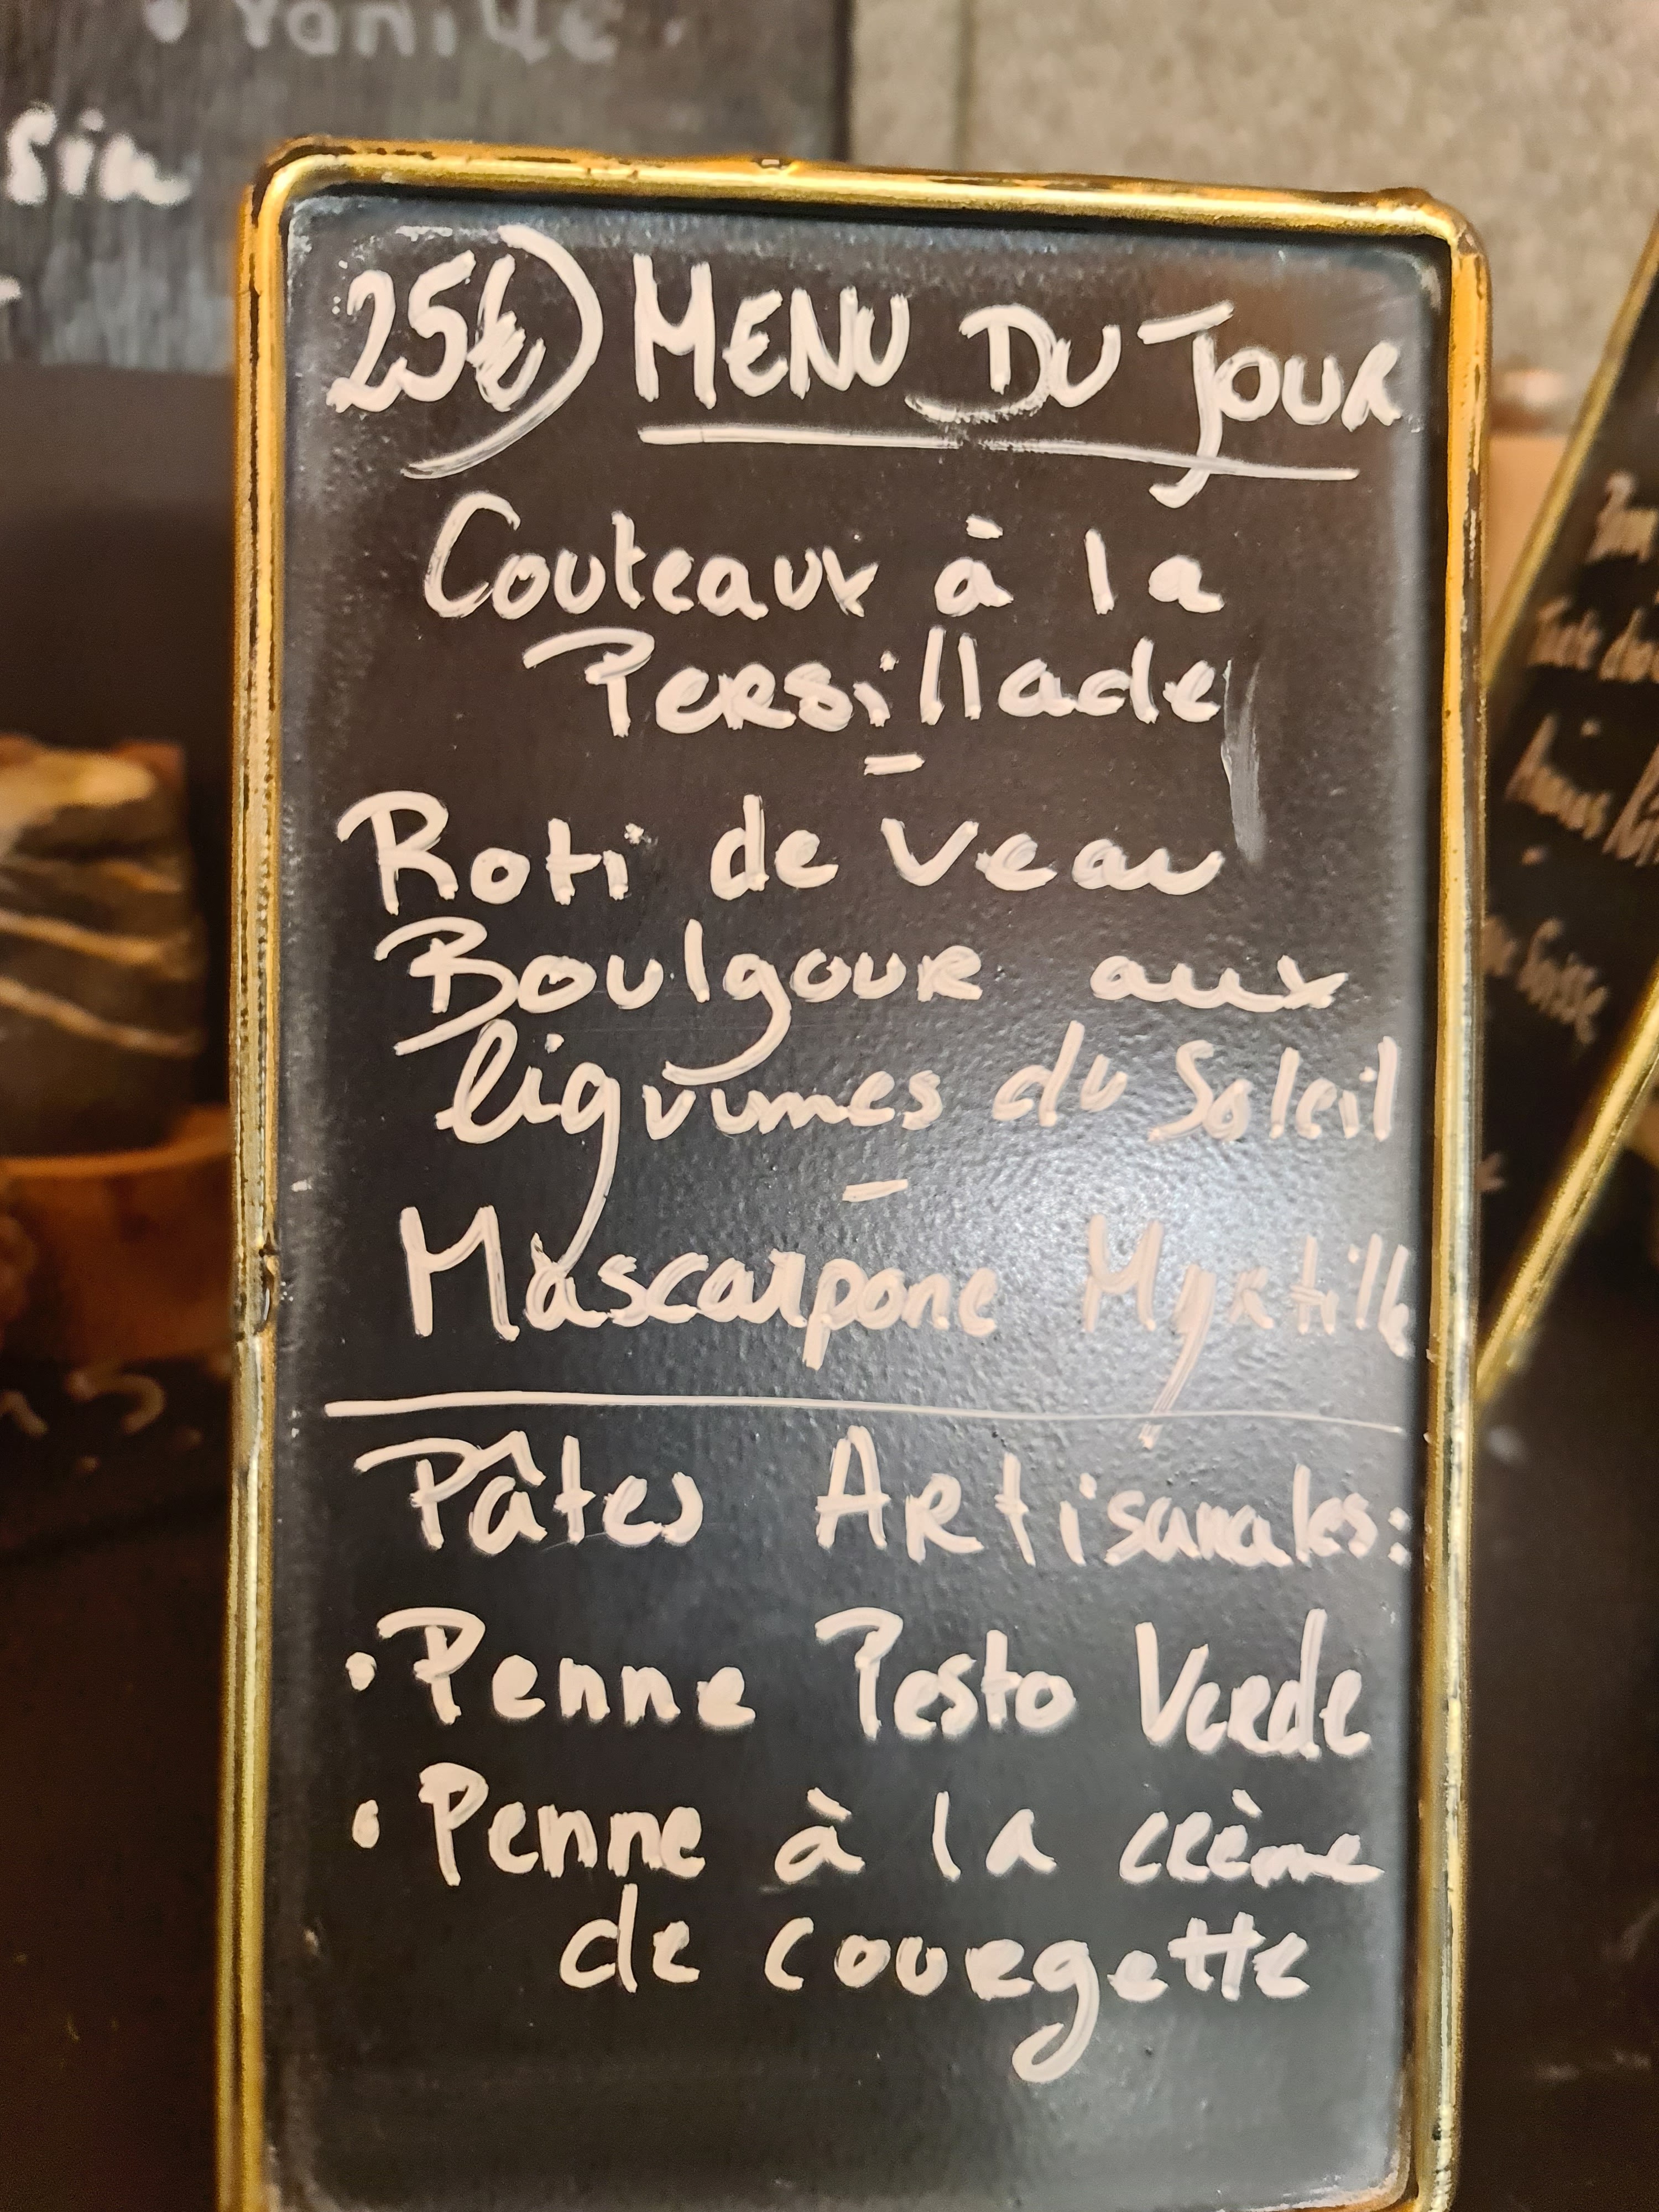 Vanille
25€) MENU DU JOUR
Couteaux à la
Persillade
-
Roti de veau
Boulgour aux
ligumes du Soleil
-
Mascarpone Myrtille
Pâtes Artisanales:
• Penne Pesto Verde
• Penne à la crème
de courgette
Suisse